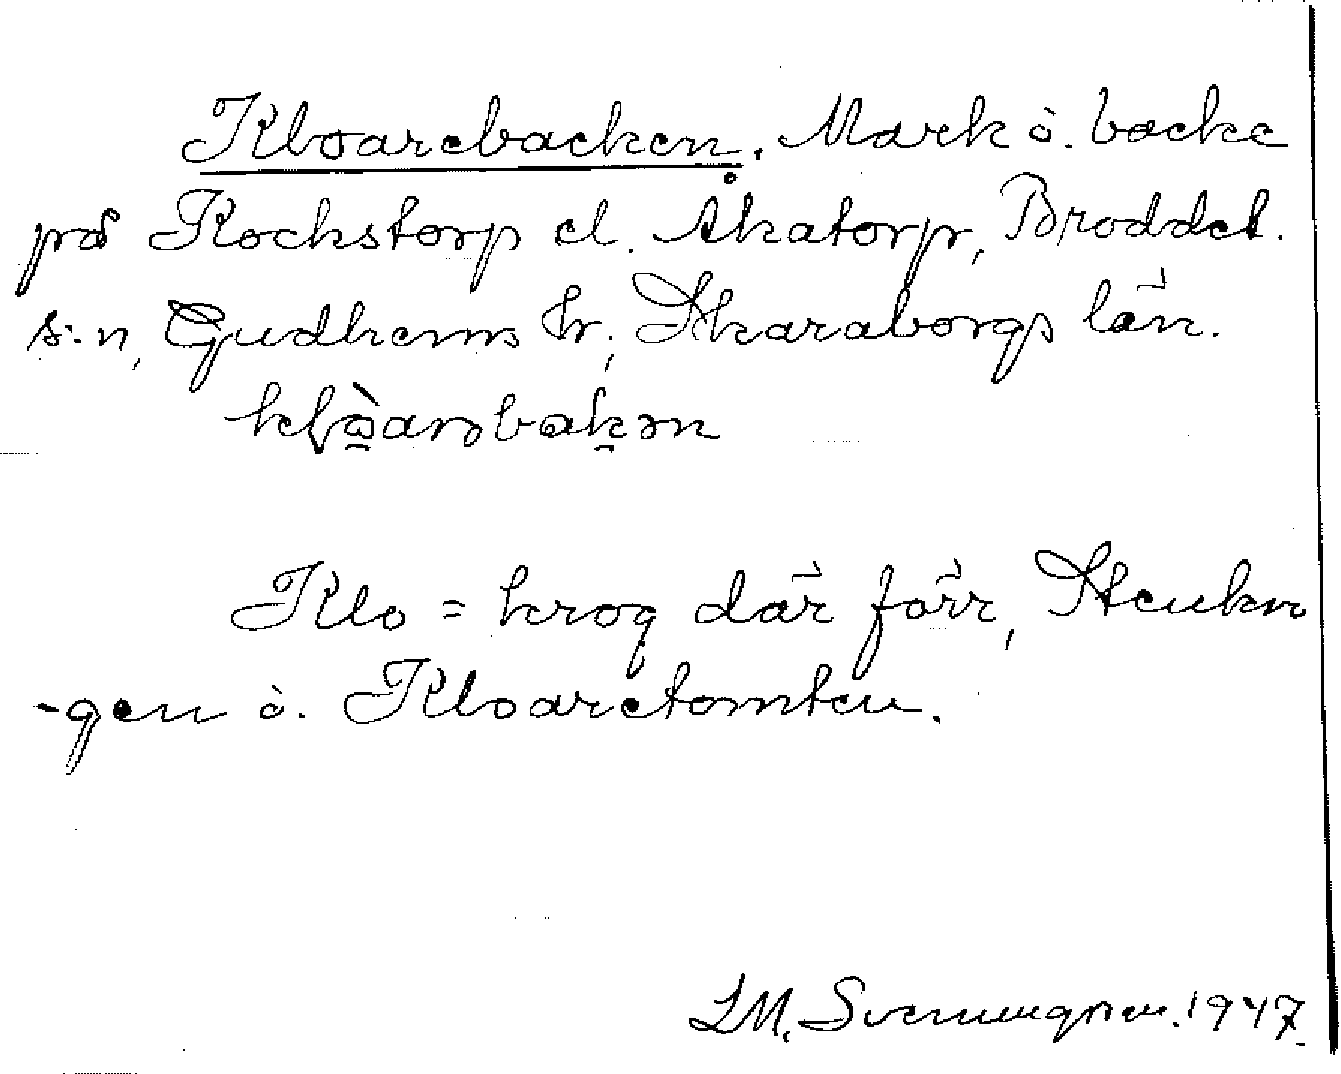 Kloarebacken. Mark o. backe
på Kockstorp el. Åkatorp, Broddet.
s:n, Gudhems hr, Skaraborgs län.
Klo = krog där förr,
-gen o. Kloaretomten.
LM. Svenungsson. 1947.